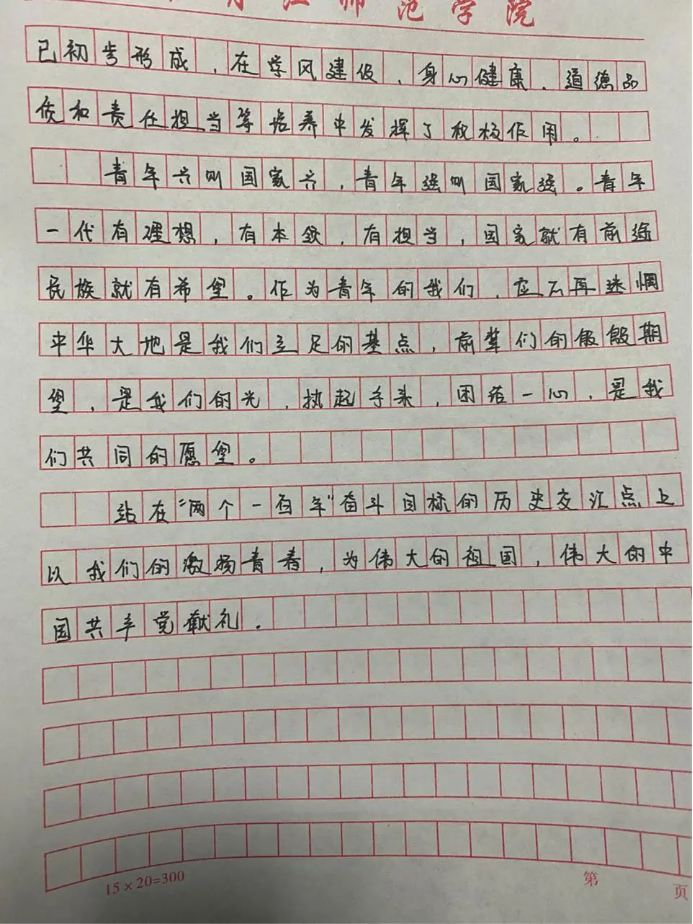 江师范学院
已初步形成，在学风建设、身心健康、道德品
质和责任担当等培养中发挥了积极作用。
青年兴则国家兴，青年强则国家强。青年
一代有理想，有本领，有担当，国家就有前途
民族就有希望。作为青年的我们，应不再迷惘
中华大地是我们立足的基点，前辈们的殷殷期
望，是我们的光，执起手来，团结一心，是我
们共同的愿望。
站在“两个一百年”奋斗目标的历史交汇点上
以我们的激扬青春，为伟大的祖国，伟大的中
国共产党献礼。
15×20=300
第 页